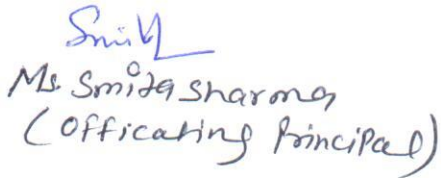 Smith
Ms. Smita Sharma
(Officating Principal)